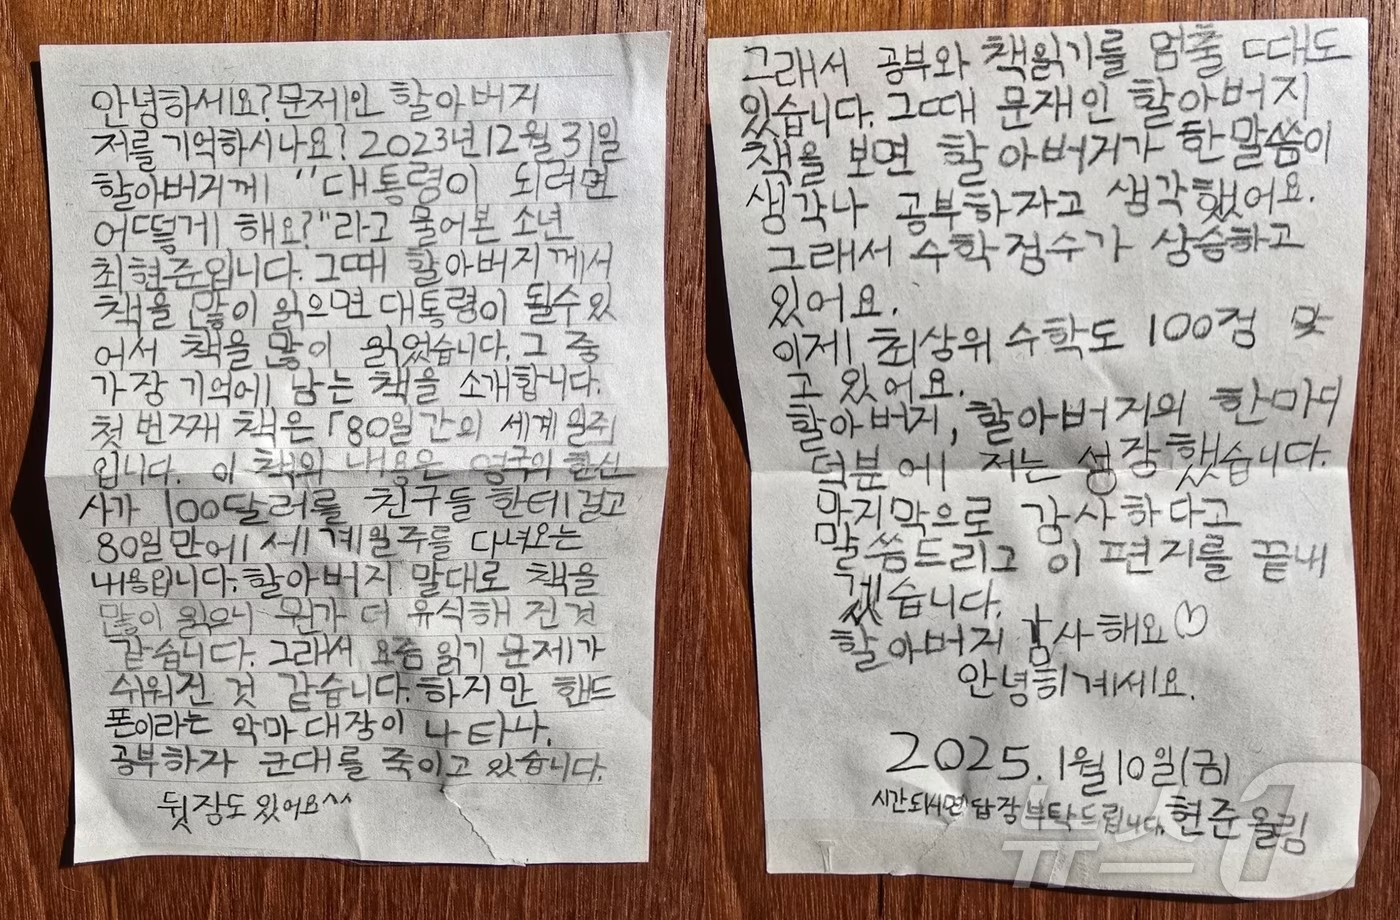 안녕하세요? 문제인 할아버지
저를 기억하시나요? 2023년 12월 31일
할아버지께 "대통령이 되려면
어떻게 해요?"라고 물어본 소년
최현준입니다. 그때 할아버지께서
책을 많이 읽으면 대통령이 될수 있
어서 책을 많이 읽었습니다. 그 중
가장 기억에 남는 책을 소개합니다.
첫 번째 책은 「80일간의 세계 일주
입니다. 이 책의 내용은 영국의 한신
사가 100달러를 친구들 한테 걸고
80일 만에 세계일주를 다녀오는
내용입니다. 할아버지 말대로 책을
많이 읽으니 뭔가 더 유식해 진 것
같습니다. 그래서 요즘 읽기 문제가
쉬워진 것 같습니다. 하지만 핸드
폰이라는 악마 대장이 나타나,
공부하자 군대를 죽이고 있습니다.
뒷장도 있어요^^
그래서 공부와 책읽기를 멈출 때도
있습니다. 그때 문재인 할아버지
책을 보면 할아버지가 한 말씀이
생각나 공부하자고 생각했어요.
그래서 수학점수가 상승하고
있어요.
이제 최상위 수학도 100점 맞
고 있어요.
할아버지, 할아버지의 한마디
덕분에 저는 성장했습니다.
마지막으로 감사하다고
말씀드리고 이 편지를 끝내
겠습니다.
할아버지 감사해요♡
안녕히계세요.
2025. 1월 10일(금)
시간되시면 답장 부탁드립니다. 현준 올림
뉴스1